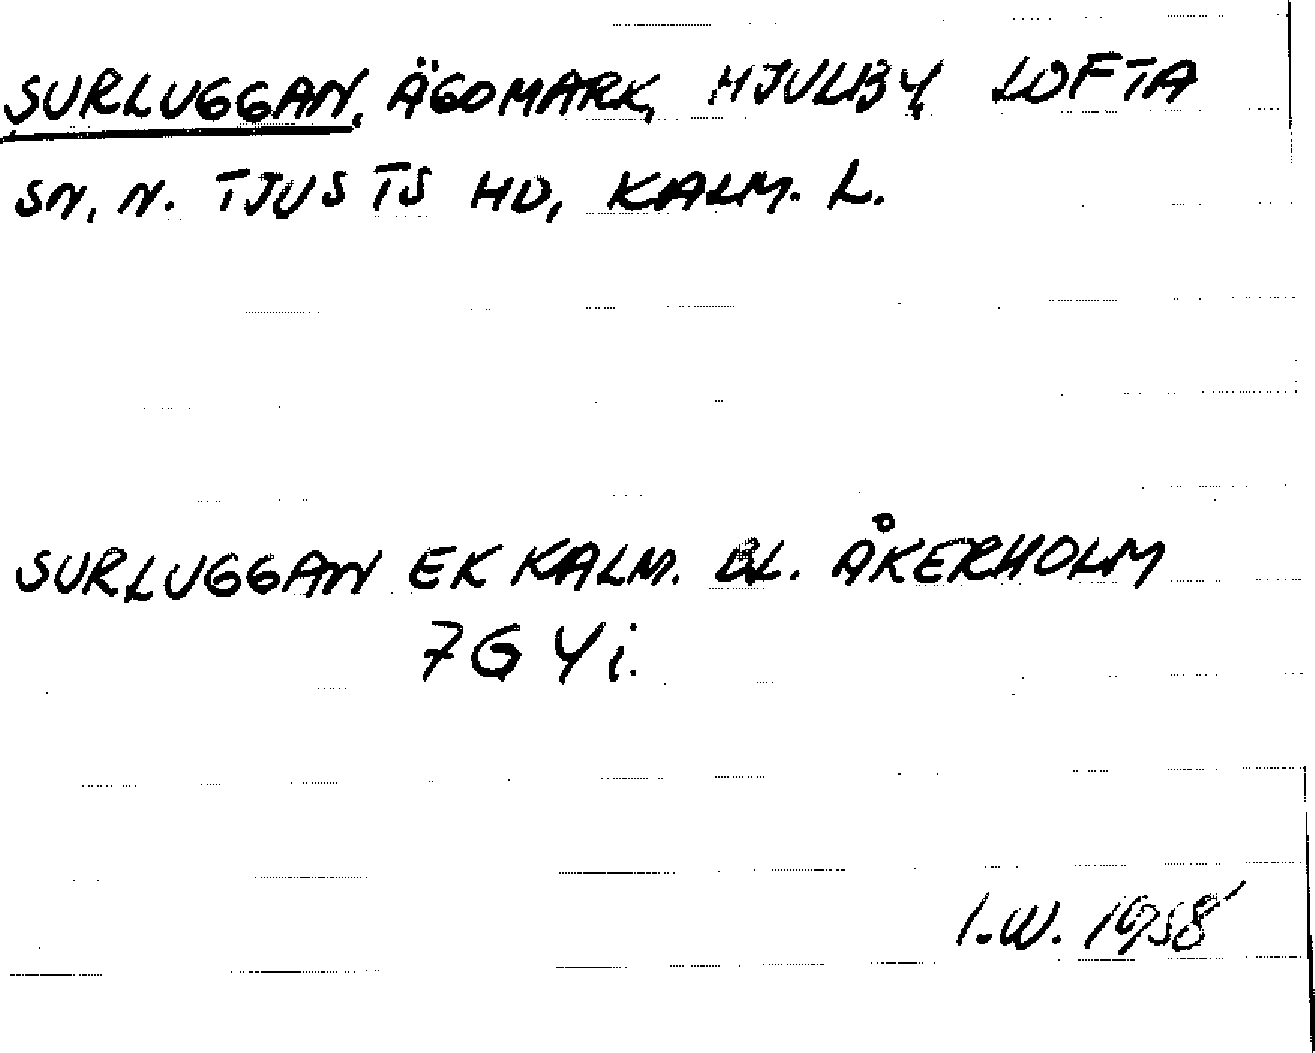 SURLUGGAN, ÄGOMARK, HJULBY, LOFTA
SN, N. TJUSTS HD, KALM. L.
SURLUGGAN EK KALM. BL. ÅKERHOLM
7G 4i.
I.W. 1958